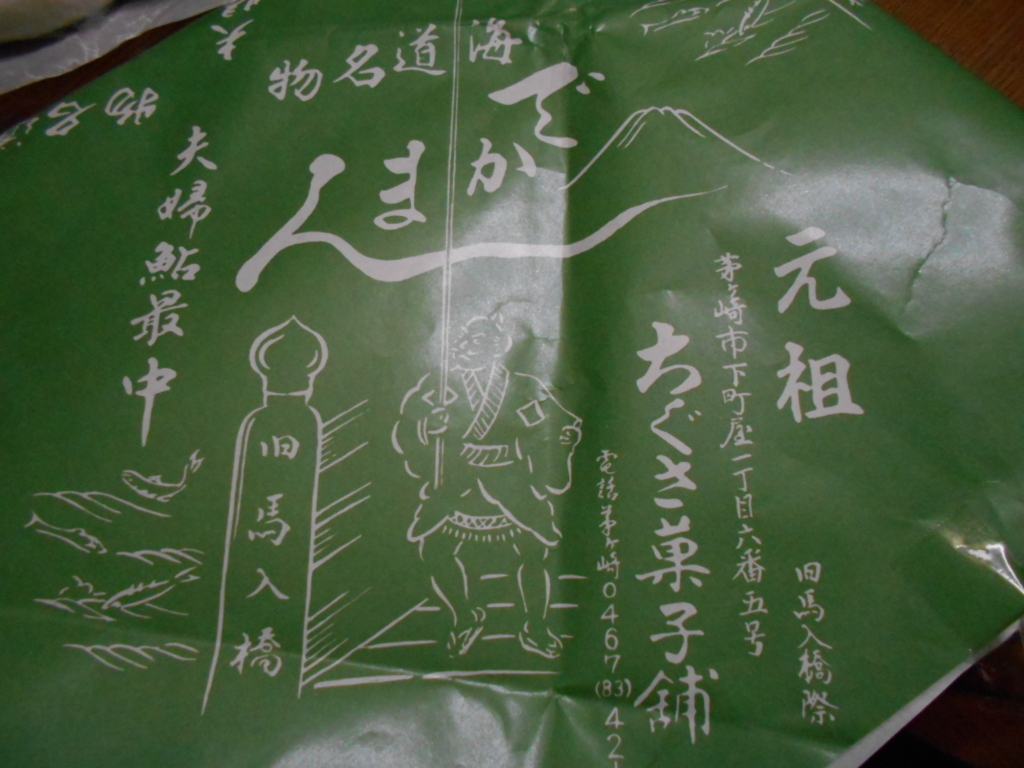 海道名物
でかまん
元祖
旧馬入橋際
茅ヶ崎市下町屋一丁目六番五号
ちぐさ菓子舗
電話茅ヶ崎0467(83)42
旧馬入橋
夫婦鮎最中
物名
夫